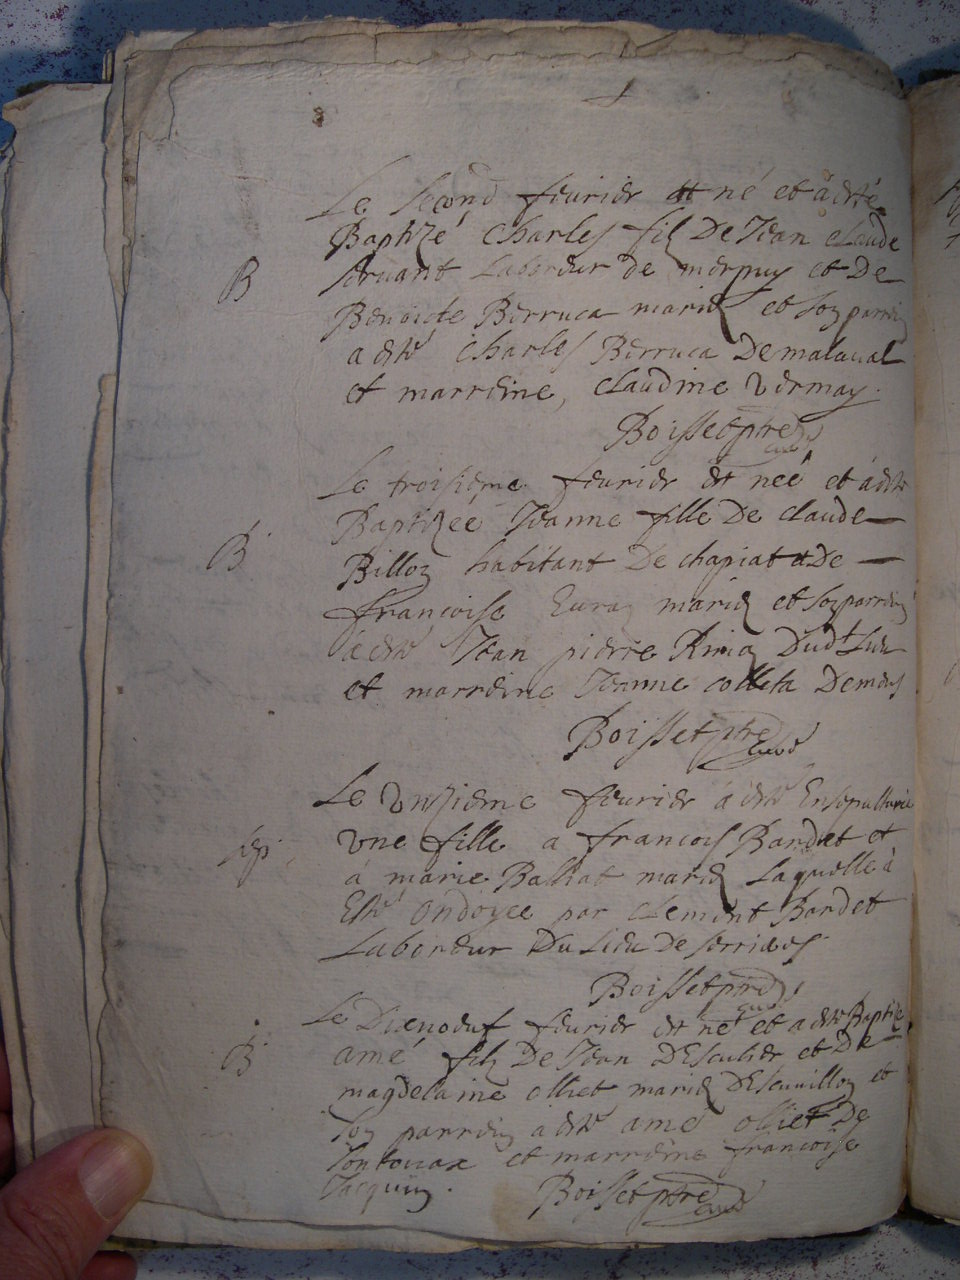 Le second feurier est né et à esté
Baptizé Charles filz De Jean claude
B seruant Laboreur de merpuy et De
Benoiste Berruca mariez et son parrin
a esté Charles Berruca De malaual
et marreine, claudine Vermay.
Boisset ptre curé
Le troisieme feurier est neé et à esté
Baptizeé Jeanne fille De claude
B Billon habitant De chapiat et De
francoise mariez et son parrein
a esté Jean pierre Dudt lieu
et marreine Jeanne colleta
Boisset ptre curé
Le Vnzieme feurier à esté Ensepulturé
sep. vne fille a francois Bardet et
à marie Balliat mariez Laquelle à
Esté ondoyee par clement Bardet
Laboreur Du Lieu De
Boisset ptre curé
Le Dixnoeuf feurier est né et a esté Baptizé
B amé filz De Jean DEsculier et De
magdelaine olliet mariez et
son parrein à esté amé olliet De
et marreine francoise
Jacquin.
Boisset ptre curé